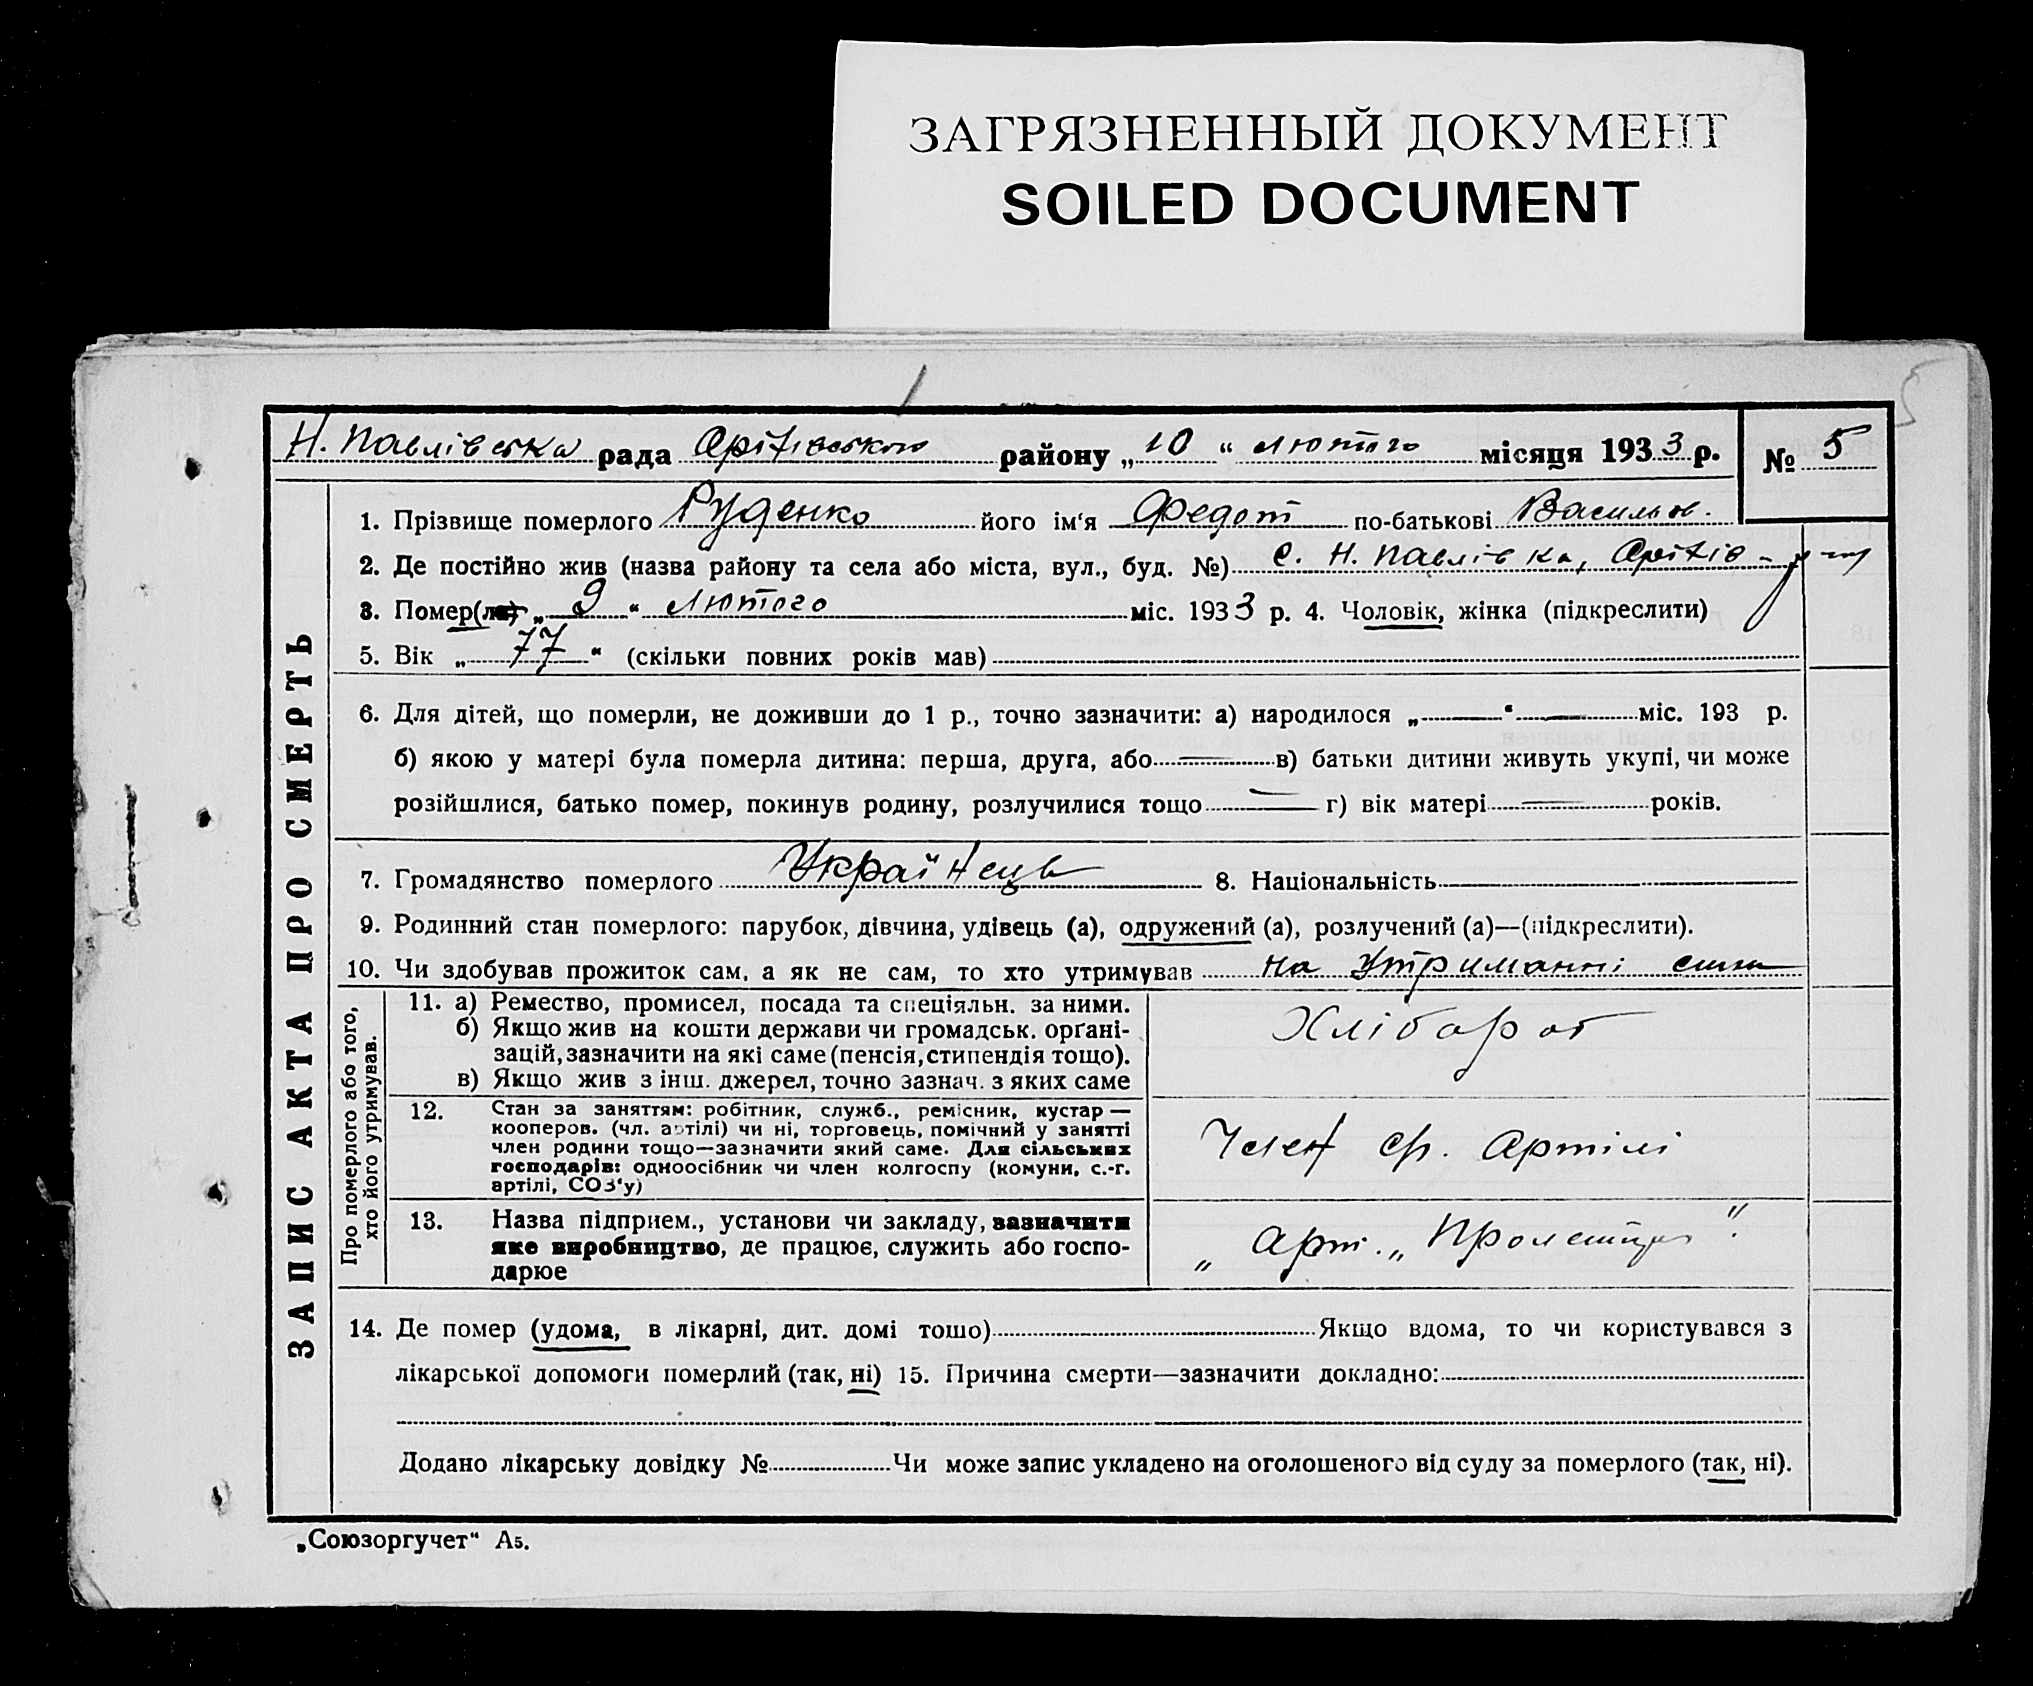 ЗАГРЯЗНЕННЫЙ ДОКУМЕНТ
SOILED DOCUMENT
5
Н. Павлівська рада Орітівського району „10“ лютого місяця 1933 р. № 5
ЗАПИС АКТА ПРО СМЕРТЬ
1. Прізвище померлого Руденко його ім‘я Федот по-батькові Васильов.
2. Де постійно жив (назва району та села або міста, вул., буд. №) с. Н. Павлівка,
3. Помер(ла) „9“ лютого міс. 1933 р. 4. Чоловік, жінка (підкреслити)
5. Вік „77“ (скільки повних років мав)
6. Для дітей, що померли, не доживши до 1 р., точно зазначити: а) народилося „—“ — міс. 193 р.
б) якою у матері була померла дитина: перша, друга, або — в) батьки дитини живуть укупі, чи може
розійшлися, батько помер, покинув родину, розлучилися тощо — г) вік матері — років.
7. Громадянство померлого Українець 8. Національність
9. Родинний стан померлого: парубок, дівчина, удівець (а), одружений (а), розлучений (а)—(підкреслити).
10. Чи здобував прожиток сам, а як не сам, то хто утримував на утриманні сина
Про померлого або того, хто його утримував.
11. а) Ремество, промисел, посада та спеціяльн. за ними.
б) Якщо жив на кошти держави чи громадськ. орґані-
зацій, зазначити на які саме (пенсія, стипендія тощо).
в) Якщо жив з інш. джерел, точно зазнач. з яких саме
Хлібороб
12. Стан за заняттям: робітник, служб., ремісник, кустар—
кооперов. (чл. артілі) чи ні, торговець, помічний у занятті
член родини тощо—зазначити який саме. Для сільських
господарів: одноосібник чи член колгоспу (комуни, с.-г.
артілі, СОЗ‘у)
Член с/г. Артілі
13. Назва підприєм., установи чи закладу, зазначити
яке виробництво, де працює, служить або госпо-
дарює
„ Арт. „
14. Де помер (удома, в лікарні, дит. домі тощо) Якщо вдома, то чи користувався з
лікарської допомоги померлий (так, ні) 15. Причина смерти—зазначити докладно:
Додано лікарську довідку № Чи може запис укладено на оголошеного від суду за померлого (так, ні).
„Союзоргучет“ А5.